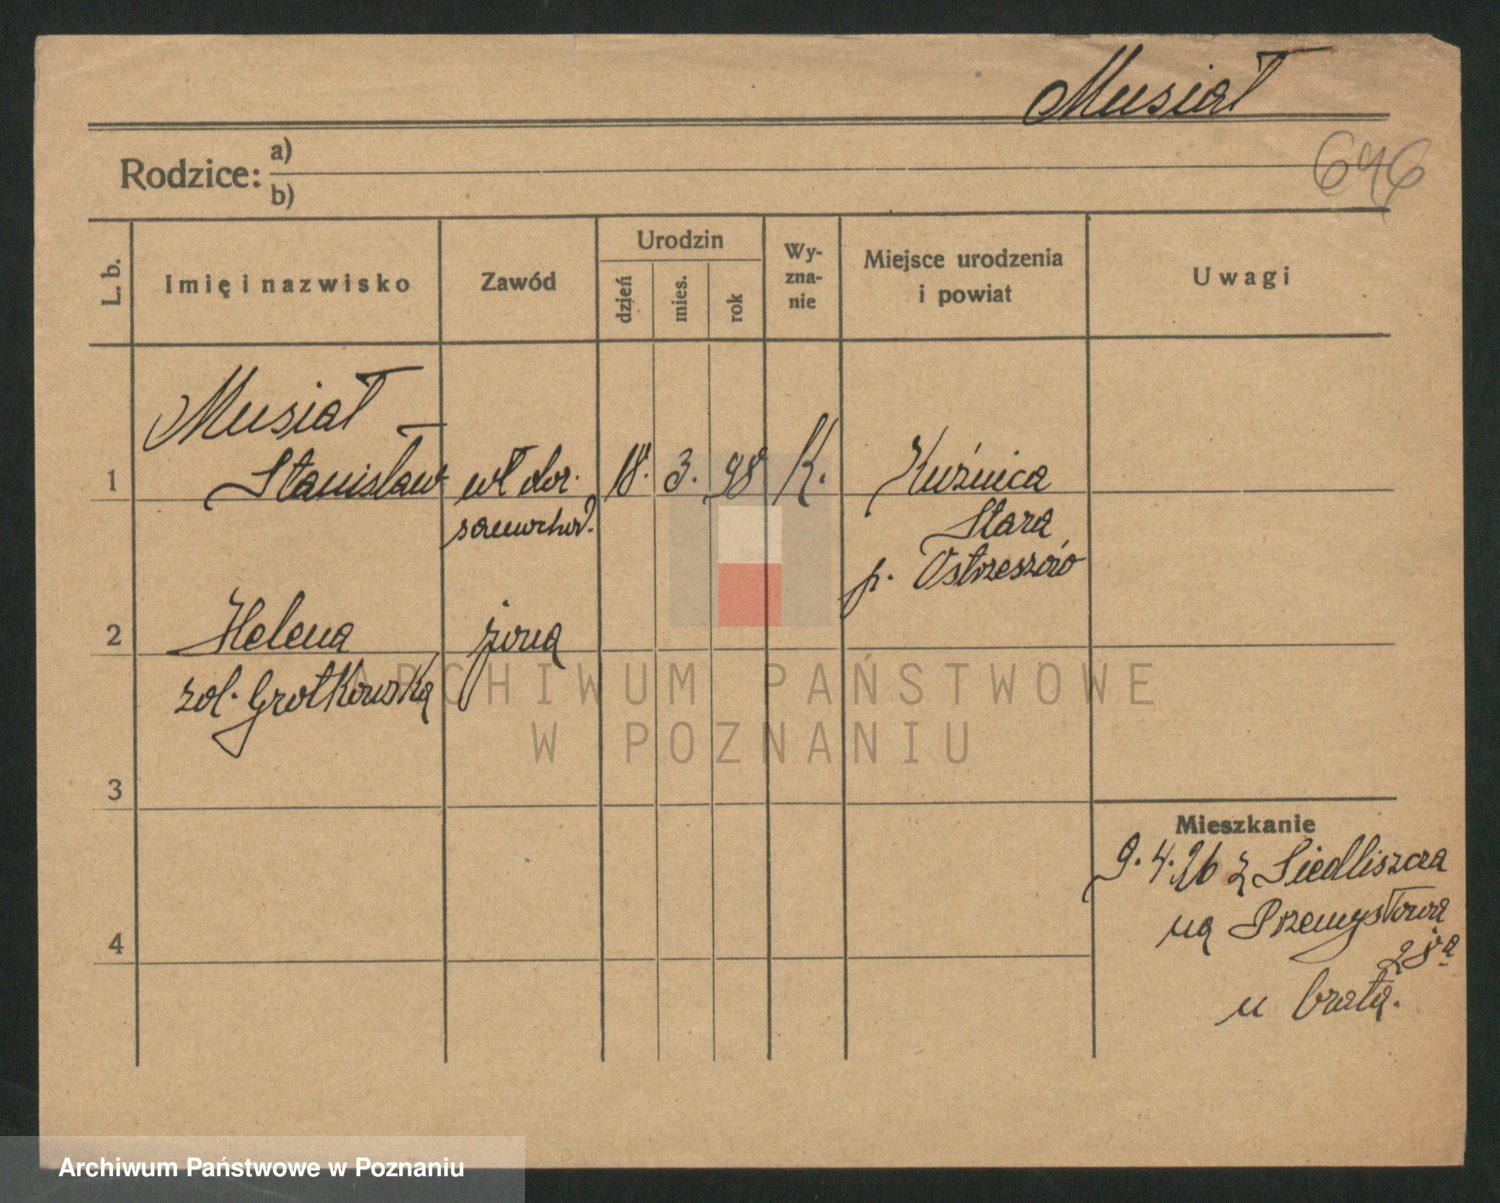 Musiał
Rodzice: a)
b)
646
L. b.
Imię i nazwisko
Zawód
Urodzin
dzień
mies.
rok
Wy-
zna-
nie
Miejsce urodzenia
i powiat
Uwagi
Musiał
1 Stanisław wł dor. 18. 3. 98 K. Kuźnica
samochod. Stara
p. Ostrzeszów
2 Helena żona
zol. Grotkowska
ARCHIWUM PAŃSTWOWE
W POZNANIU
3
Mieszkanie
9.4.26 z Siedliszcza
na Przemysłową
28a
u brata.
4
Archiwum Państwowe w Poznaniu